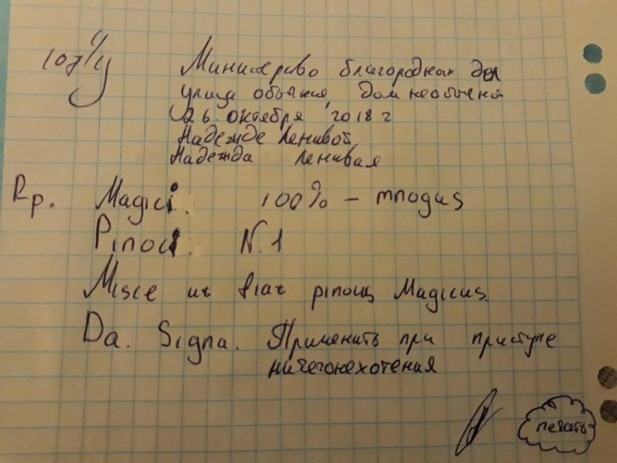 Министерство благородных дел
улица обычная, дом необычный
26 октября 2018 г
Надежде Ленивой
Надежда Ленивая
Rp. Magici. 100% – mnogus
Pinoci. N.1
Misce ut fiat pinous Magicus
Da. Signa. Применить при приступе
ничегонехотения
печать